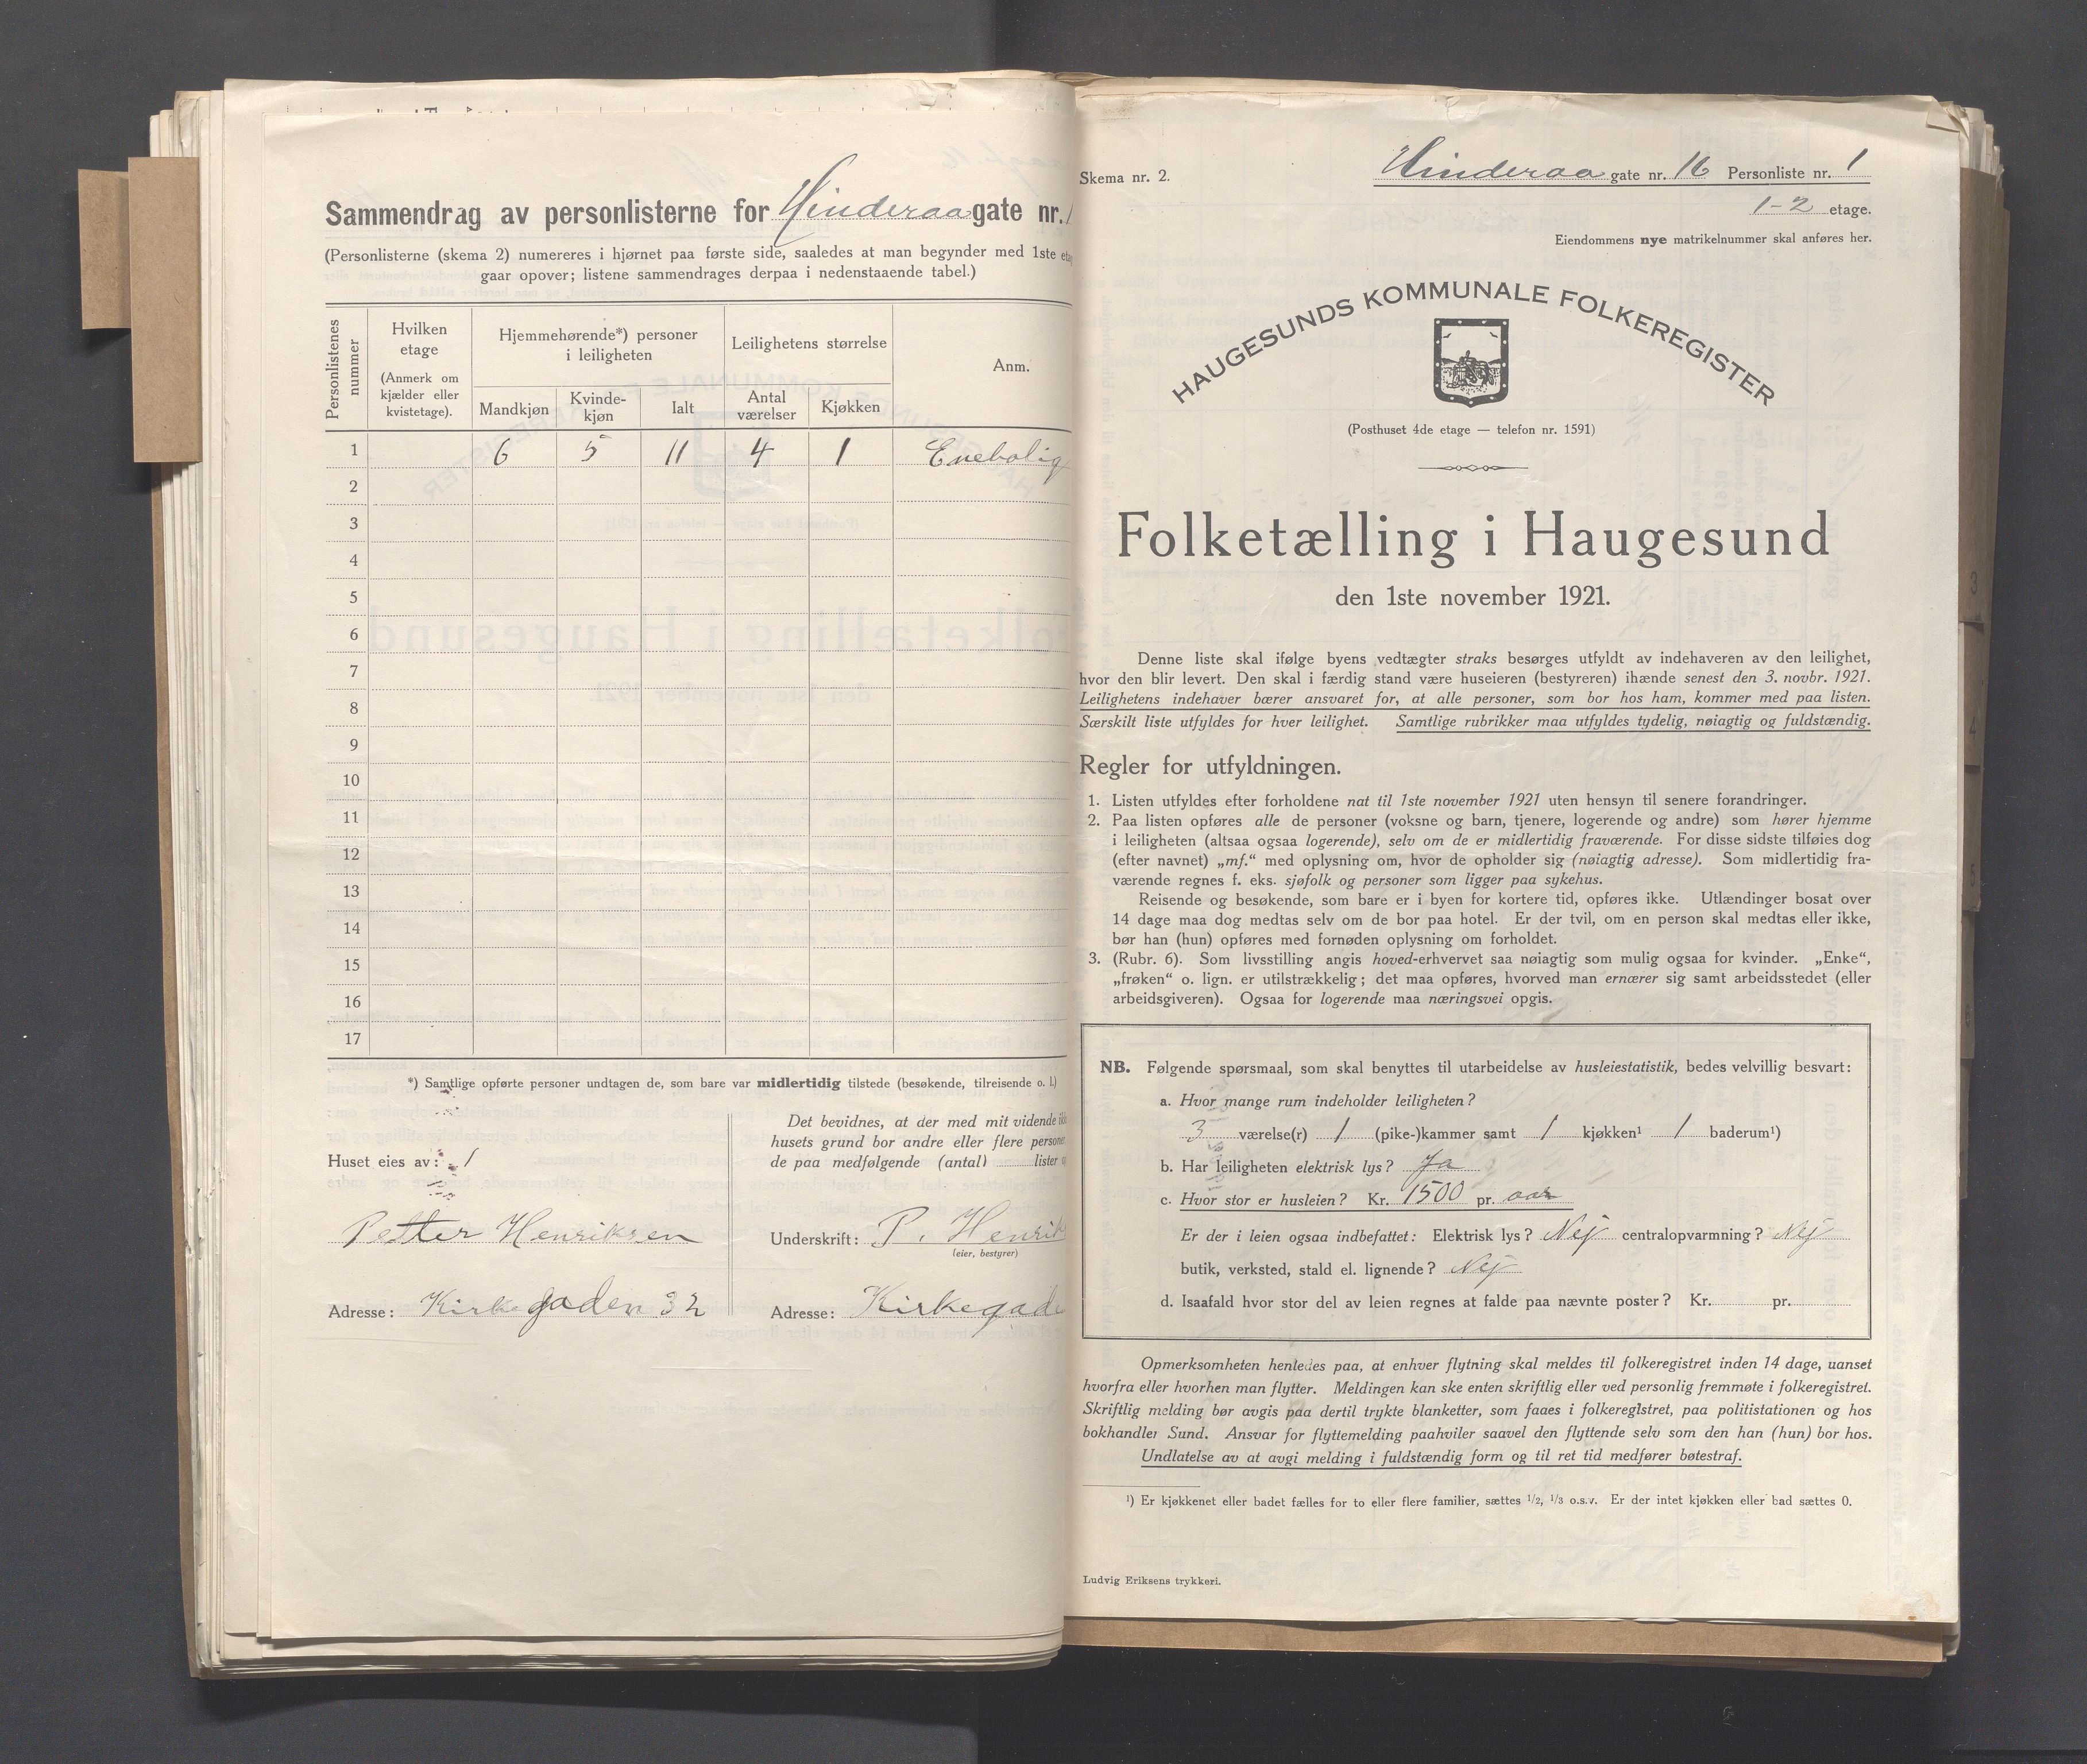 Sammendrag av personlisterne for Hinderaa gate nr. 1
(Personlisterne (skema 2) numereres i hjørnet paa første side, saaledes at man begynder med 1ste
gaar opover; listene sammendrages derpaa i nedenstaaende tabel.)
Personlistenes nummer
Hvilken etage
(Anmerk om kjælder eller kvistetage).
Hjemmehørende*) personer i leiligheten
Leilighetens størrelse
Anm.
Mandkjøn
Kvinde-kjøn
Ialt
Antal værelser
Kjøkken
1 6 5 11 4 1 Enebolig
2
3
4
5
6
7
8
9
10
11
12
13
14
15
16
17
*) Samtlige opførte personer undtagen de, som bare var midlertidig tilstede (besøkende, tilreisende o. l.)
Huset eies av:
Petter Henriksen
Adresse: Kirkegaden 32
Det bevidnes, at der med mit vidende
husets grund bor andre eller flere
de paa medfølgende (antal) lister
Underskrift: P. Henrik
(eier, bestyrer)
Adresse: Kirkegade
Skema nr. 2.
Hinderaa gate nr. 16 Personliste nr. 1
1-2 etage.
Eiendommens nye matrikelnummer skal anføres her.
HAUGESUNDS KOMMUNALE FOLKEREGISTER
(Posthuset 4de etage — telefon nr. 1591)
Folketælling i Haugesund
den 1ste november 1921.
Denne liste skal ifølge byens vedtægter straks besørges utfyldt av indehaveren av den leilighet,
hvor den blir levert. Den skal i færdig stand være huseieren (bestyreren) ihænde senest den 3. novbr. 1921.
Leilighetens indehaver bærer ansvaret for, at alle personer, som bor hos ham, kommer med paa listen.
Særskilt liste utfyldes for hver leilighet. Samtlige rubrikker maa utfyldes tydelig, nøiagtig og fuldstændig.
Regler for utfyldningen.
1. Listen utfyldes efter forholdene nat til 1ste november 1921 uten hensyn til senere forandringer.
2. Paa listen opføres alle de personer (voksne og barn, tjenere, logerende og andre) som hører hjemme
i leiligheten (altsaa ogsaa logerende), selv om de er midlertidig fraværende. For disse sidste tilføies dog
(efter navnet) „mf.“ med oplysning om, hvor de opholder sig (nøiagtig adresse). Som midlertidig fra-
værende regnes f. eks. sjøfolk og personer som ligger paa sykehus.
Reisende og besøkende, som bare er i byen for kortere tid, opføres ikke. Utlændinger bosat over
14 dage maa dog medtas selv om de bor paa hotel. Er der tvil, om en person skal medtas eller ikke,
bør han (hun) opføres med fornøden oplysning om forholdet.
3. (Rubr. 6). Som livsstilling angis hoved-erhvervet saa nøiagtig som mulig ogsaa for kvinder. „Enke“,
„frøken“ o. lign. er utilstrækkelig; det maa opføres, hvorved man ernærer sig samt arbeidsstedet (eller
arbeidsgiveren). Ogsaa for logerende maa næringsvei opgis.
NB. Følgende spørsmaal, som skal benyttes til utarbeidelse av husleiestatistik, bedes velvillig besvart:
a. Hvor mange rum indeholder leiligheten?
3 værelse(r) 1 (pike-)kammer samt 1 kjøkken¹ 1 baderum¹)
b. Har leiligheten elektrisk lys? Ja
c. Hvor stor er husleien? Kr. 1500 pr. aar
Er der i leien ogsaa indbefattet: Elektrisk lys? Nej centralopvarmning? Nej
butik, verksted, stald el. lignende? Nej
d. Isaafald hvor stor del av leien regnes at falde paa nævnte poster? Kr. pr.
Opmerksomheten henledes paa, at enhver flytning skal meldes til folkeregistret inden 14 dage, uanset
hvorfra eller hvorhen man flytter. Meldingen kan ske enten skriftlig eller ved personlig fremmøte i folkeregistret.
Skriftlig melding bør avgis paa dertil trykte blanketter, som faaes i folkeregistret, paa politistationen og hos
bokhandler Sund. Ansvar for flyttemelding paahviler saavel den flyttende selv som den han (hun) bor hos.
Undlatelse av at avgi melding i fuldstændig form og til ret tid medfører bøtestraf.
¹) Er kjøkkenet eller badet fælles for to eller flere familier, sættes 1/2, 1/3 o.s.v. Er der intet kjøkken eller bad sættes 0.
Ludvig Eriksens trykkeri.